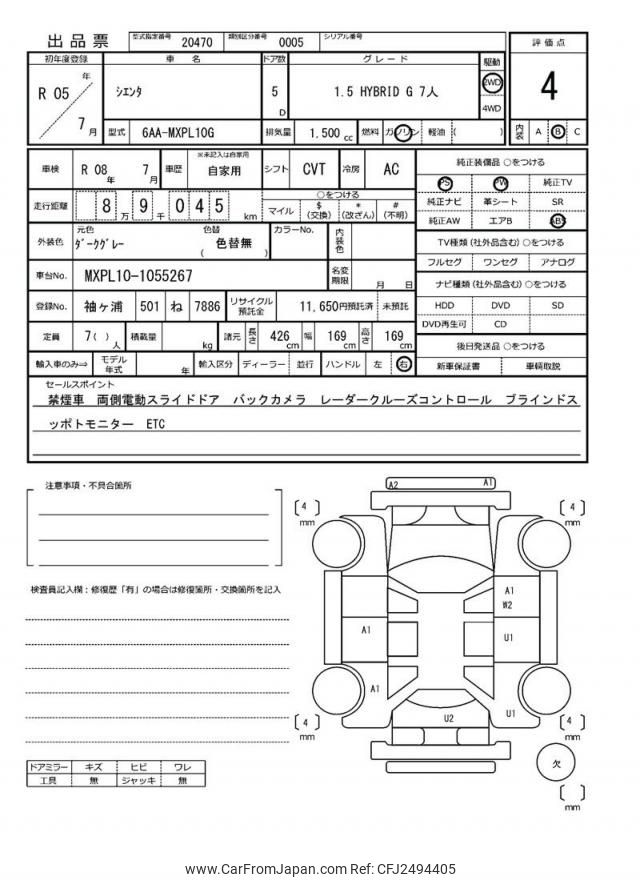 出品票
型式指定番号 20470 類別区分番号 0005 シリアル番号
初年度登録 車名 ドア数 グレード 駆動
R 05 年 7 月
シエンタ
5 D
1.5 HYBRID G 7人
2WD
4WD
型式 6AA-MXPL10G 排気量 1,500 cc 燃料 ガソリン 軽油 ( )
評価点
4
内装 A B C
車検 R 08 年 7 月 車歴 ※未記入は自家用 自家用 シフト CVT 冷房 AC
走行距離 8 万 9 千 0 4 5 km
○をつける
マイル $ (交換) * (改ざん) # (不明)
外装色 元色 ダークグレー 色替 色替無 ( ) カラーNo. 内装色
車台No. MXPL10-1055267 名変期限 月 日
登録No. 袖ヶ浦 501 ね 7886 リサイクル預託金 11,650円預託済 未預託
定員 7( ) 人 積載量 kg 諸元 長さ 426 cm 幅 169 cm 高さ 169 cm
輸入車のみ⇒ モデル年式 年 輸入区分 ディーラー 並行 ハンドル 左 右
純正装備品 ○をつける
PS PW 純正TV
純正ナビ 革シート SR
純正AW エアB ABS
TV種類 (社外品含む) ○をつける
フルセグ ワンセグ アナログ
ナビ種類 (社外品含む) ○をつける
HDD DVD SD
DVD再生可 CD
後日発送品 ○をつける
新車保証書 車輌取説
セールスポイント
禁煙車 両側電動スライドドア バックカメラ レーダークルーズコントロール ブラインドス
ッポトモニター ETC
注意事項・不具合箇所
検査員記入欄:修復歴「有」の場合は修復箇所・交換箇所を記入
ドアミラー キズ ヒビ ワレ
工具 無 ジャッキ 無
A2 A1
[ 4 ] mm
[ 4 ] mm
A1
W2
A1
U1
A1
U2
U1
[ 4 ] mm
[ 4 ] mm
欠
[ ] mm
www.CarFromJapan.com Ref: CFJ2494405